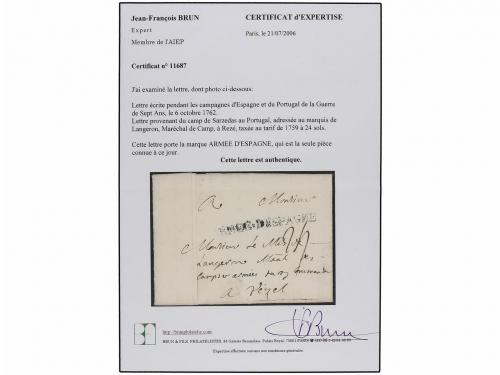 Jean-François BRUN
Expert
Membre de l'AIEP
CERTIFICAT d'EXPERTISE
Paris, le 21/07/2006
Certificat n° 11687
J'ai examiné la lettre, dont photo ci-dessous:
Lettre écrite pendant les campagnes d'Espagne et du Portugal de la Guerre
de Sept Ans, le 6 octobre 1762.
Lettre provenant du camp de Sarzedas au Portugal, adressée au marquis de
Langeron, Maréchal de Camp, à Rezé, taxée au tarif de 1759 à 24 sols.
Cette lettre porte la marque ARMEE D'ESPAGNE, qui est la seule pièce
connue à ce jour.
Cette lettre est authentique.
A Monsieur
D'ESPAGNE
Monsieur Le
Langeron
armées du roy
A
http://brunphilatelie.com
BRUN & FILS PHILATELISTES, 85 Galerie Beaujolais, Palais Royal, 75001 PARIS
Expertise effectuée suivant nos conditions générales